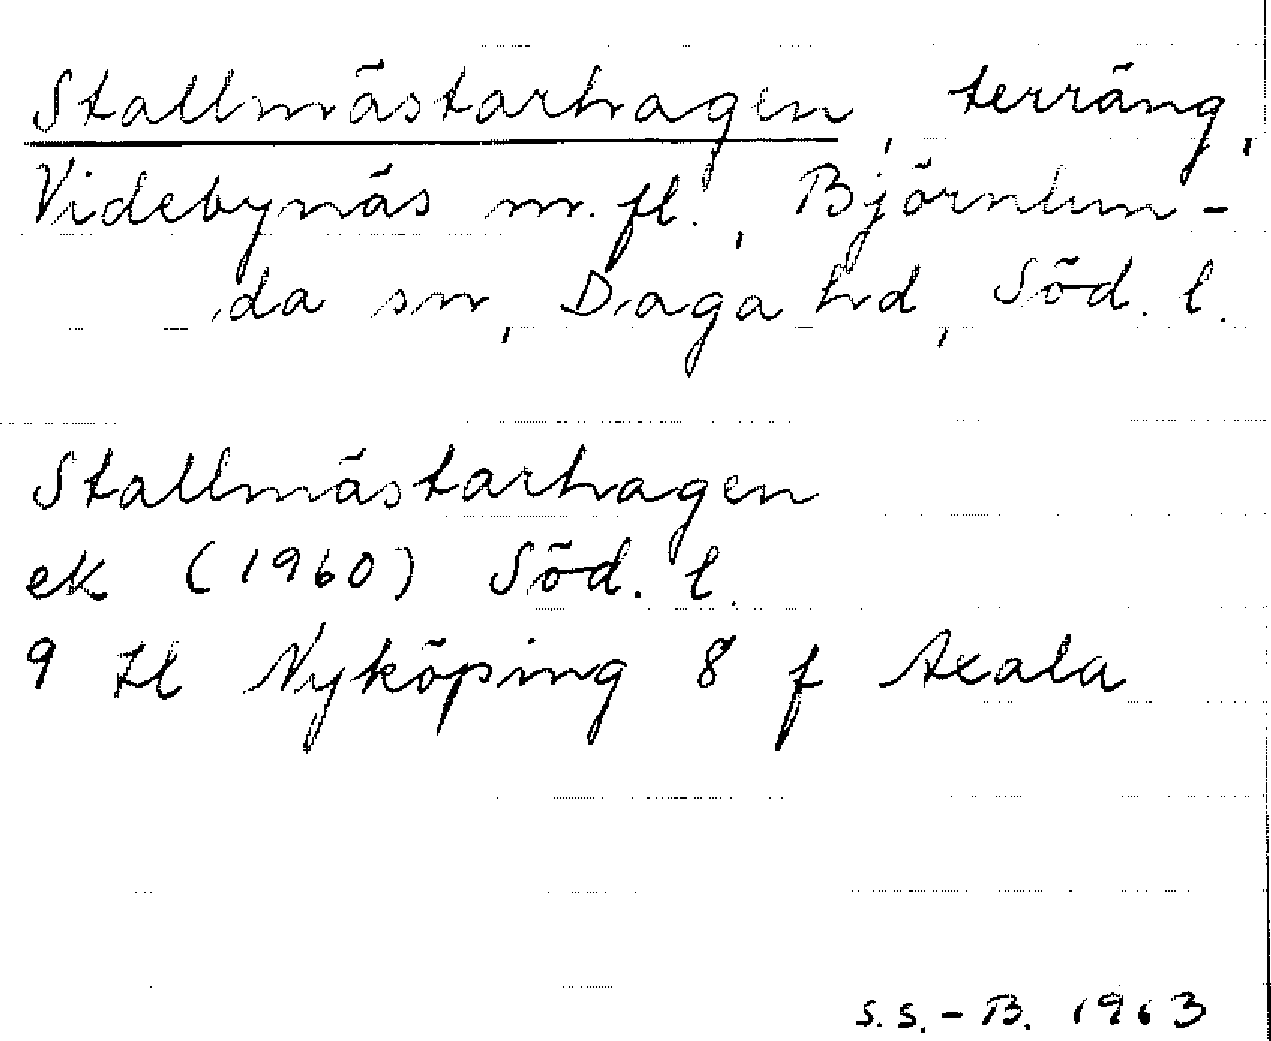 Stallmästarhagen, terräng,
Videbynäs m.fl., Björnlun-
da sn, Daga hd, Söd. l.
Stallmästarhagen
ek (1960) Söd. l.
9 Hl Nyköping 8 f Axala
S.S.-B. 1963